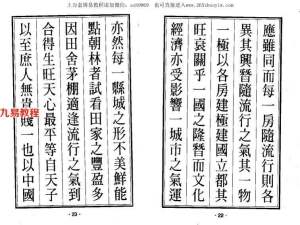 上万套周易教程添加微信：sch9969 也可直接进入 www.265zhouyiw.com
應雖同而每一房隨流行則各
異其興暨隨流行之氣其一物
一極以各房建極建國都立
旺衰關乎一國之隆替而文化
經濟亦受影響一城市之氣運
- 22 -
亦然每一縣城之形不美鮮能
點朝林者試看田家之豐盈多
因田舍茅棚適逢流行之氣到
合得生旺天心最平等自天子
以至庶人無貴賤一也以中國
- 23 -
九易教程